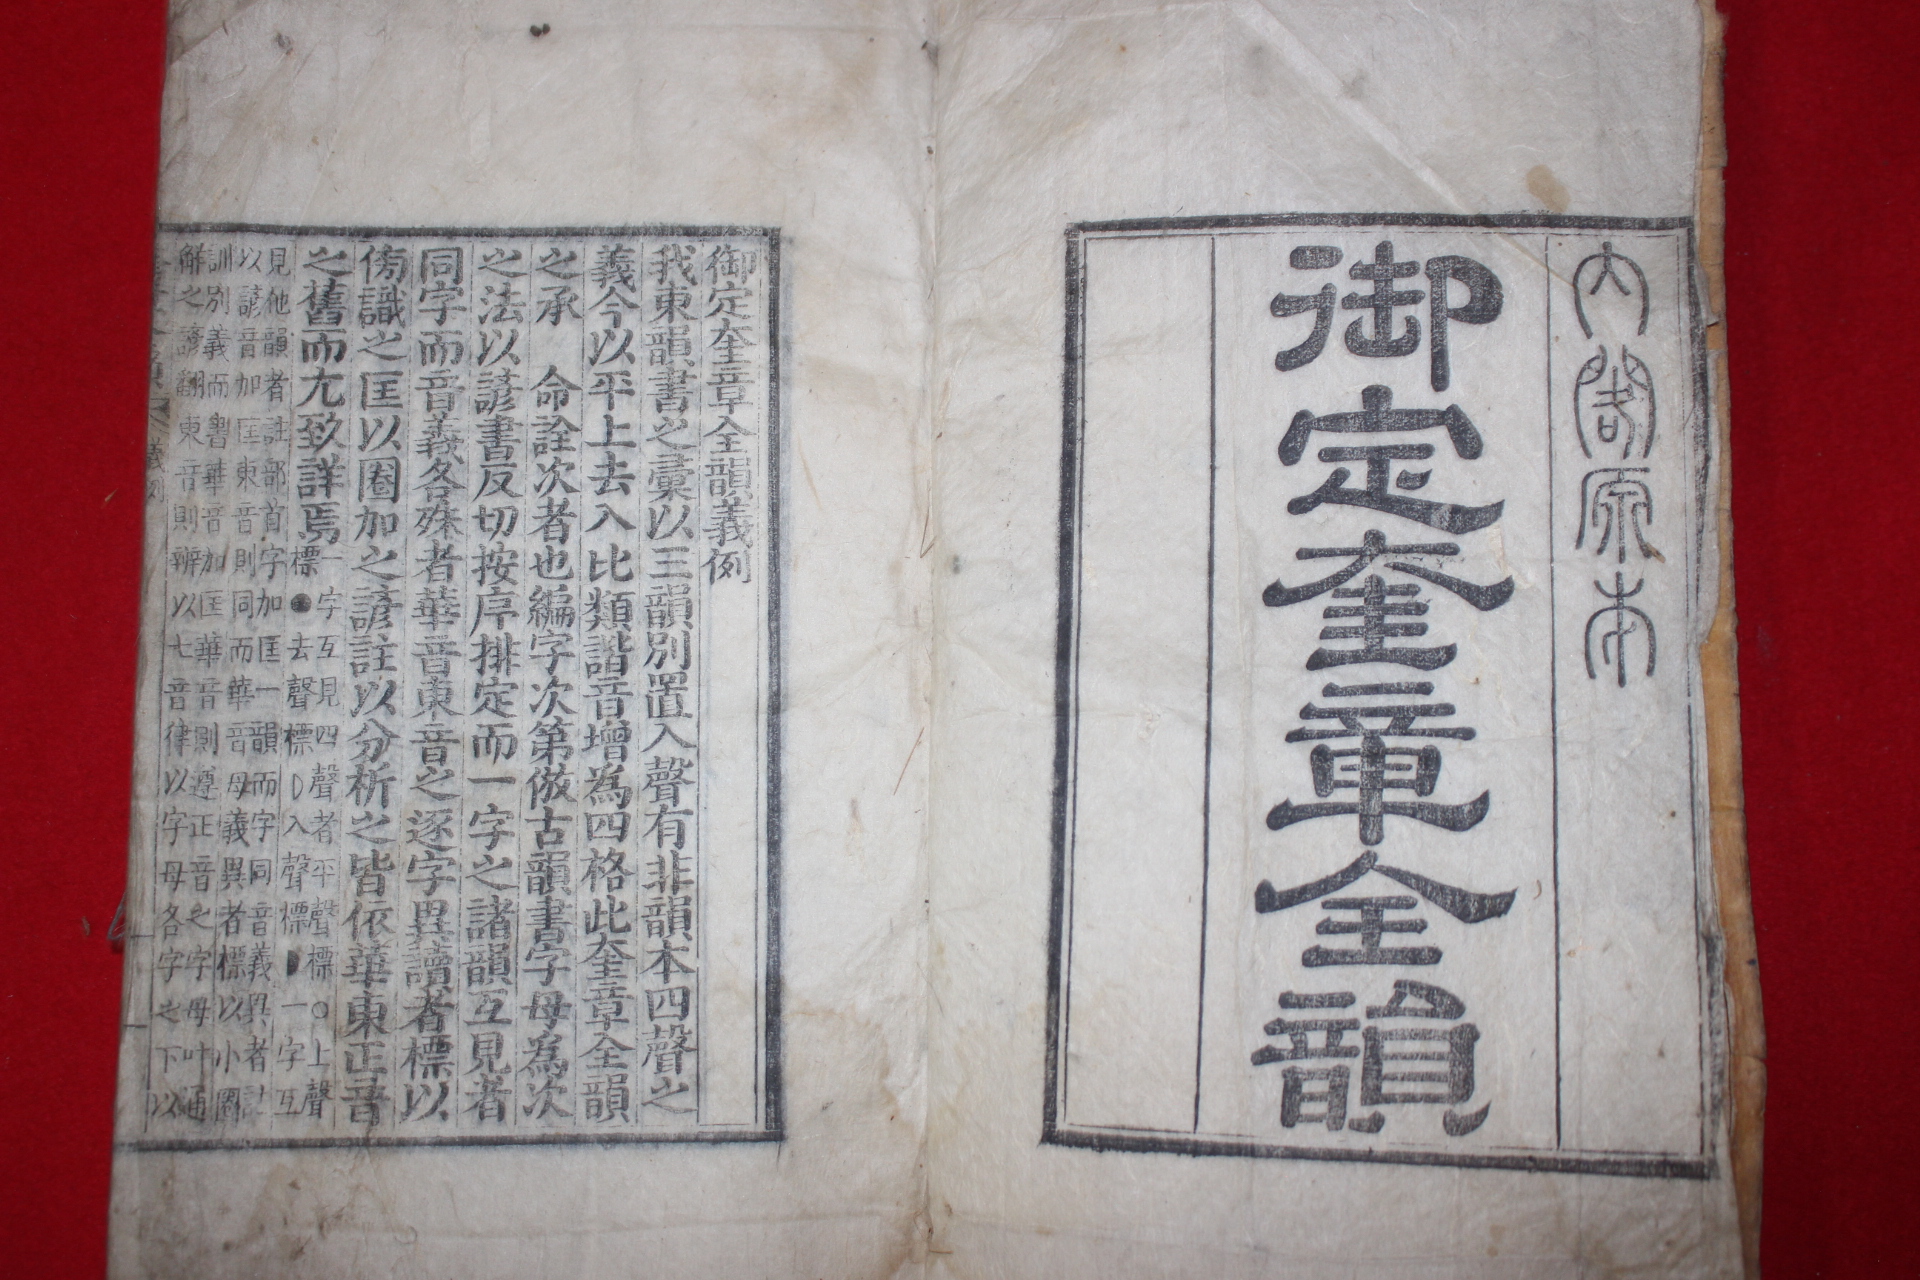 內閣原本
御定奎章全韻
御定奎章全韻義例
我東韻書之彙以三韻別置入聲有非韻本四聲之
義今以平上去入比類諧音增為四格此奎章全韻
之承 命詮次者也編字次第倣古韻書字母為次
之法以諺書反切按序排定而一字之諸韻互見者
同字而音義各殊者華音東音之逐字異讀者標以
傍識之匡以圈加之諺註以分析之皆依華東正音
之舊而尤致詳焉
一字互見四聲者平聲標○上聲
標●去聲標☽入聲標◗一字互
見他韻者註部首字加匡一韻而字同音義異者註
以諺音加匡東音則同而華音母義異者標以小圈
訓別義而疊華音加匡華音則遵正音之字母叶通
解之諺翻東音則辨以七音律以字母各字之下以
義例